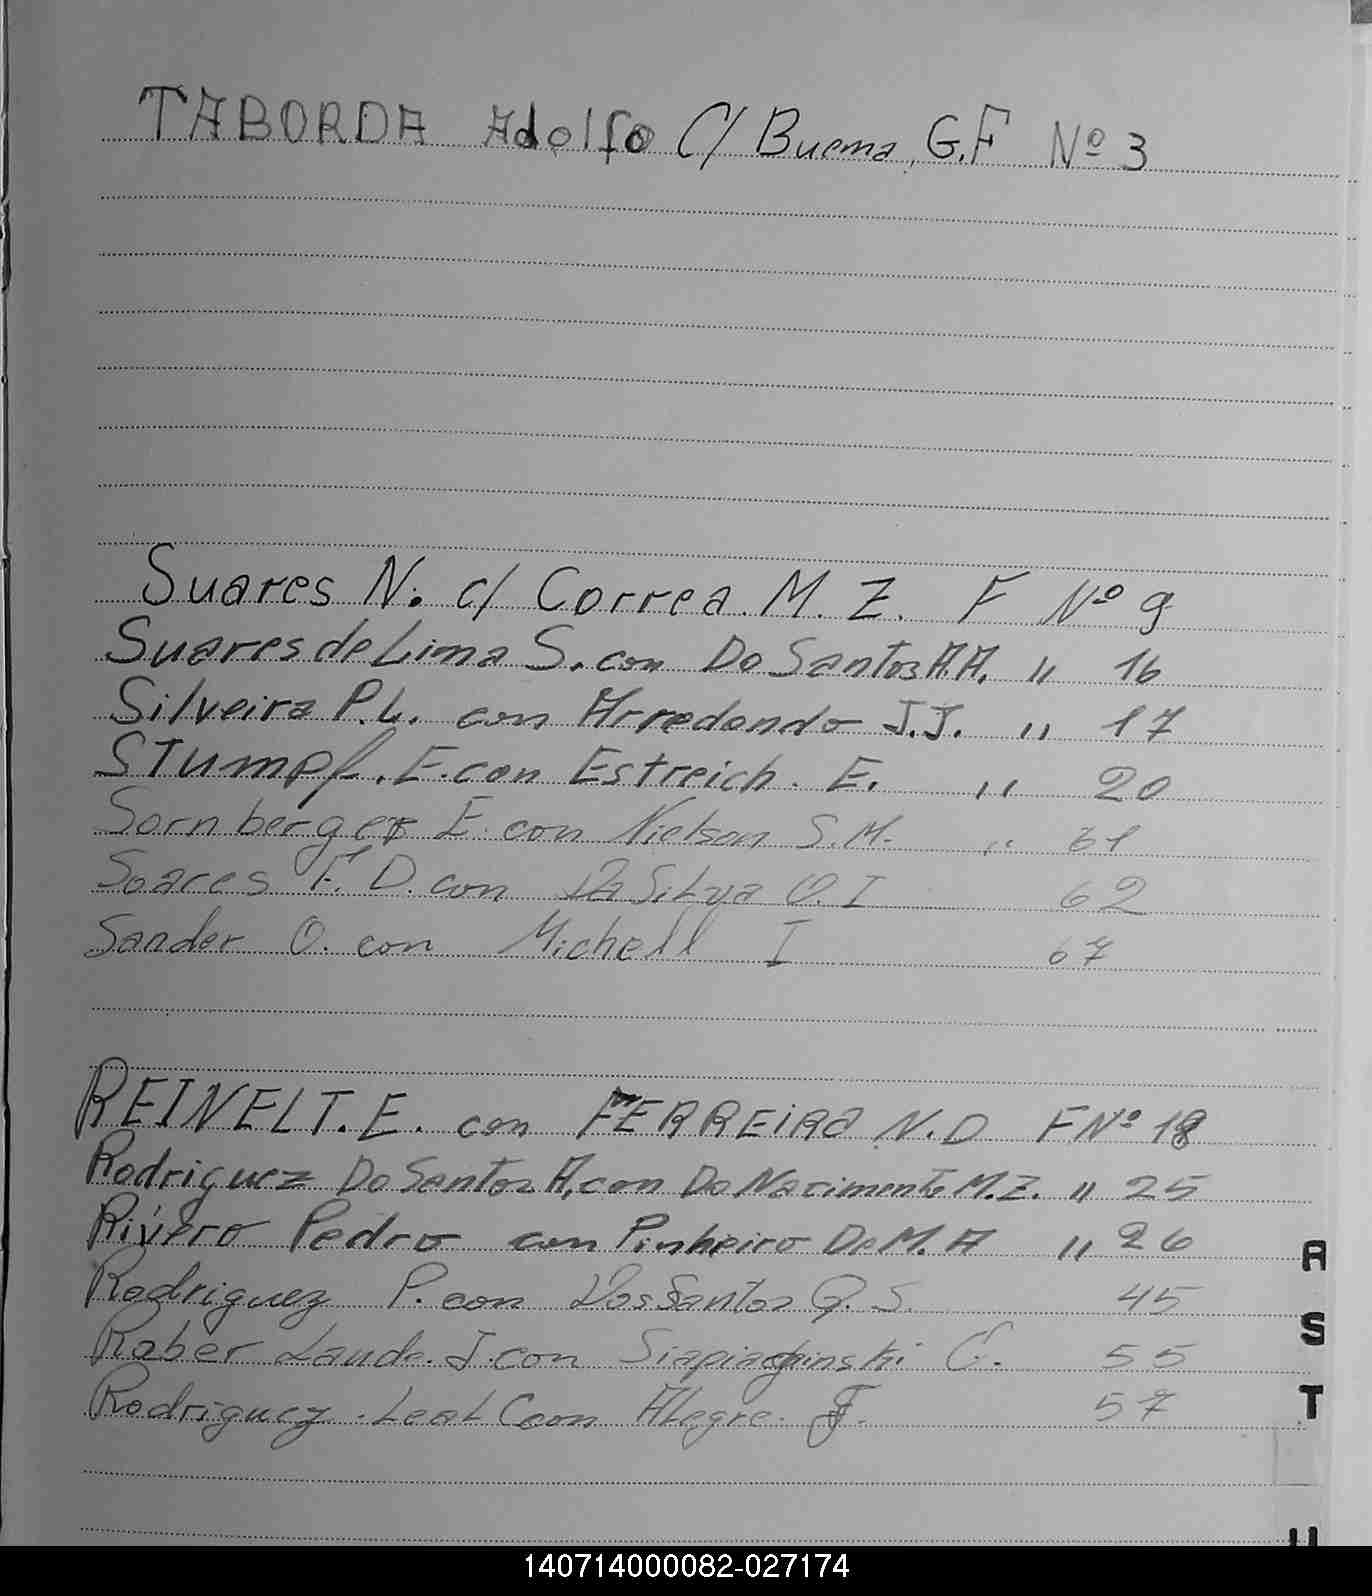 TABORDA Adolfo C/ Buema, G.F Nº 3
Suares N. c/ Correa. M. Z. F Nº 9
Suares de Lima S. con Do Santos A.A. " 16
Silveira P.L. con Arredondo J.J. " 17
STumpf. E. con Estreich. E. " 20
Sornberger E. con Nielson S.M. " 61
Soares F. D. con Da Silva O. I 62
Sander O. con Michell I 67
REINELT. E. con FERREiRA N.D F Nº 18
Rodriguez Do Santos A, con Do Nacimento M.Z. " 25
Rivero Pedro con Pinheiro De M. A " 26
Rodriguez P. con Dos Santos Q. S. 45
Raber Laude. J. con C. 55
Rodriguez. Leal C con Alegre. F. 57
R
S
T
U
140714000082-027174